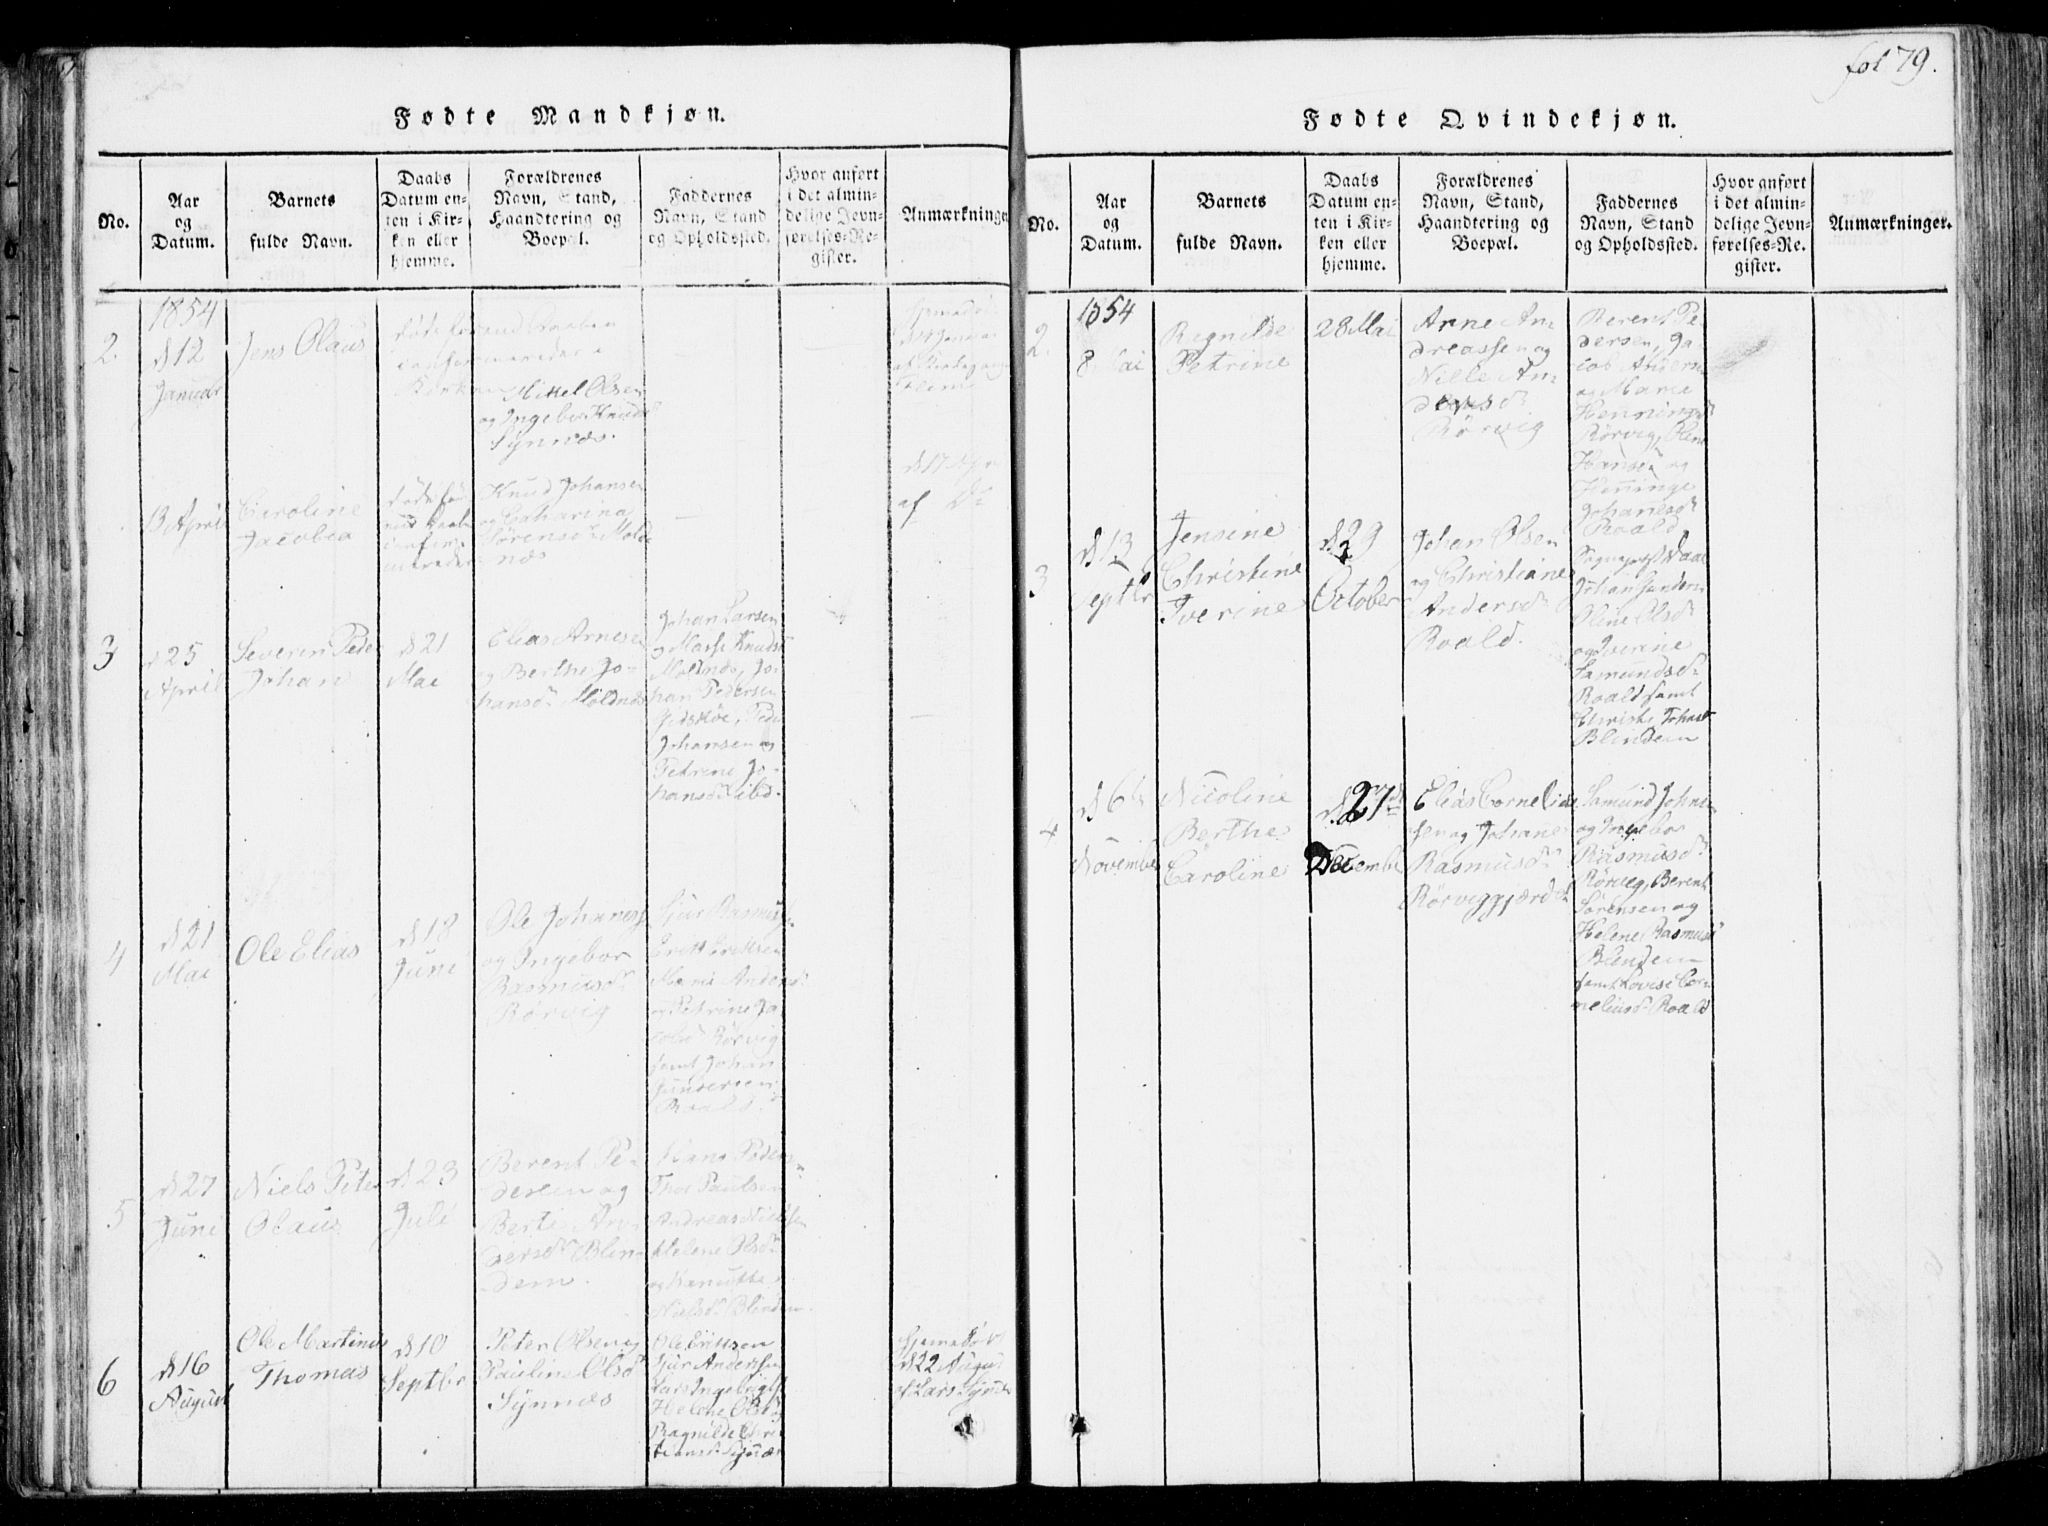 fol 79.
Fødte Mandkjøn.
No.
Aar
og
Datum.
Barnets
fulde Navn.
Daabs
Datum en-
ten i Kir-
ken eller
hjemme.
Forældrenes
Navn, Stand,
Haandtering og
Boepæl.
Faddernes
Navn, Stand
og Opholdssted.
Hvor anført
i det almin-
delige Jevn-
førelses-Re-
gister.
Anmærkninger
1854
2.
d 12
Januar
Jens Olaus
Kirken
Mikkel Olsen
og Ingebor Knuds
Synnæs.
13 April
Caroline
Jacobia
Knud Johansen
og Catharina
Sørensd. Molde
næs
d 17 Apr
af Do
3
d 25
April
Severin Peder
Johan
d 21
Mai
Elias Arnesen
og Berthe Jo-
hansd. Moldnæs
Johan Larsen
og Marte Knudsd
Moldnæs, Jo-
han Pedersen
Giskøe, Peder
Johansen og
Petrine Jo-
hansd. ibd.
4
d 21
Mai
Ole Elias
d 18
Juni
Ole Johanes
og Ingebor
Rasmusd.
Rørvig
Sjur Rasmus
Erik Eriksen
Anders
og Petrine Ja
cobsd Rørvig
samt Johan
Gundersen
Roald.
5
d 27
Juni
Niels Peter
Olaus
d 23
Juli
Berent Pe-
dersen og
Berte An-
dersd. Blin-
dem.
Hans Peders
Thor Paulsen
Andreas Nielsen
Helene Olsd.
og Hanikke
Nielsd. Blindem
6
d 16
August
Ole Martinus
Thomas
d 10
Septbr
Peter Olsen og
Pauline Olsd
Synnæs
Ole Eriksen
Sjur Andersen
Lars Ingebrigts
Helene Olsd
Ragnilde Chri
stiansd. Synnæs
Hjemedøbt
d 22 August
af Lars Synnes
Fødte Qvindekjøn.
No.
Aar
og
Datum.
Barnets
fulde Navn.
Daabs
Datum en-
ten i Kir-
ken eller
hjemme.
Forældrenes
Navn, Stand,
Haandtering og
Boepæl.
Faddernes
Navn, Stand
og Opholdssted.
Hvor anført
i det almin-
delige Jevn-
førelses-Re-
gister.
Anmærkninger.
1854
2.
8 Mai
Regnilde
Petrine
28 Mai
Arne An
dreassen og
Nille An
dersd.
Rørvig
Berent Pe
dersen, Ja
cob Anders
og Marie
Hennings
Rørvig, Oline
Hansd. og
Henninge
Johanesd.
Roald
3
d 13
Septbr
Jensine
Christine
Iverine
d. 29
October
Johan Olsen
og Christiane
Andersd.
Roald.
Daae
Johan Gunders
Oline Olsd.
og Iverine
Samundsd.
Roald samt
Christi Johans
Blindem
4
d 6te
November
Nicoline
Berthe
Caroline
d. 27de
December
Elias Cornelius
sen og Johane
Rasmusd.
Rørviggjærdet
Samund Johns
og Ingebor
Rasmusd.
Rørvig, Berent
Sørensen og
Helene Rasmusd
Blindem
samt Lovise Cor
neliusd. Roald